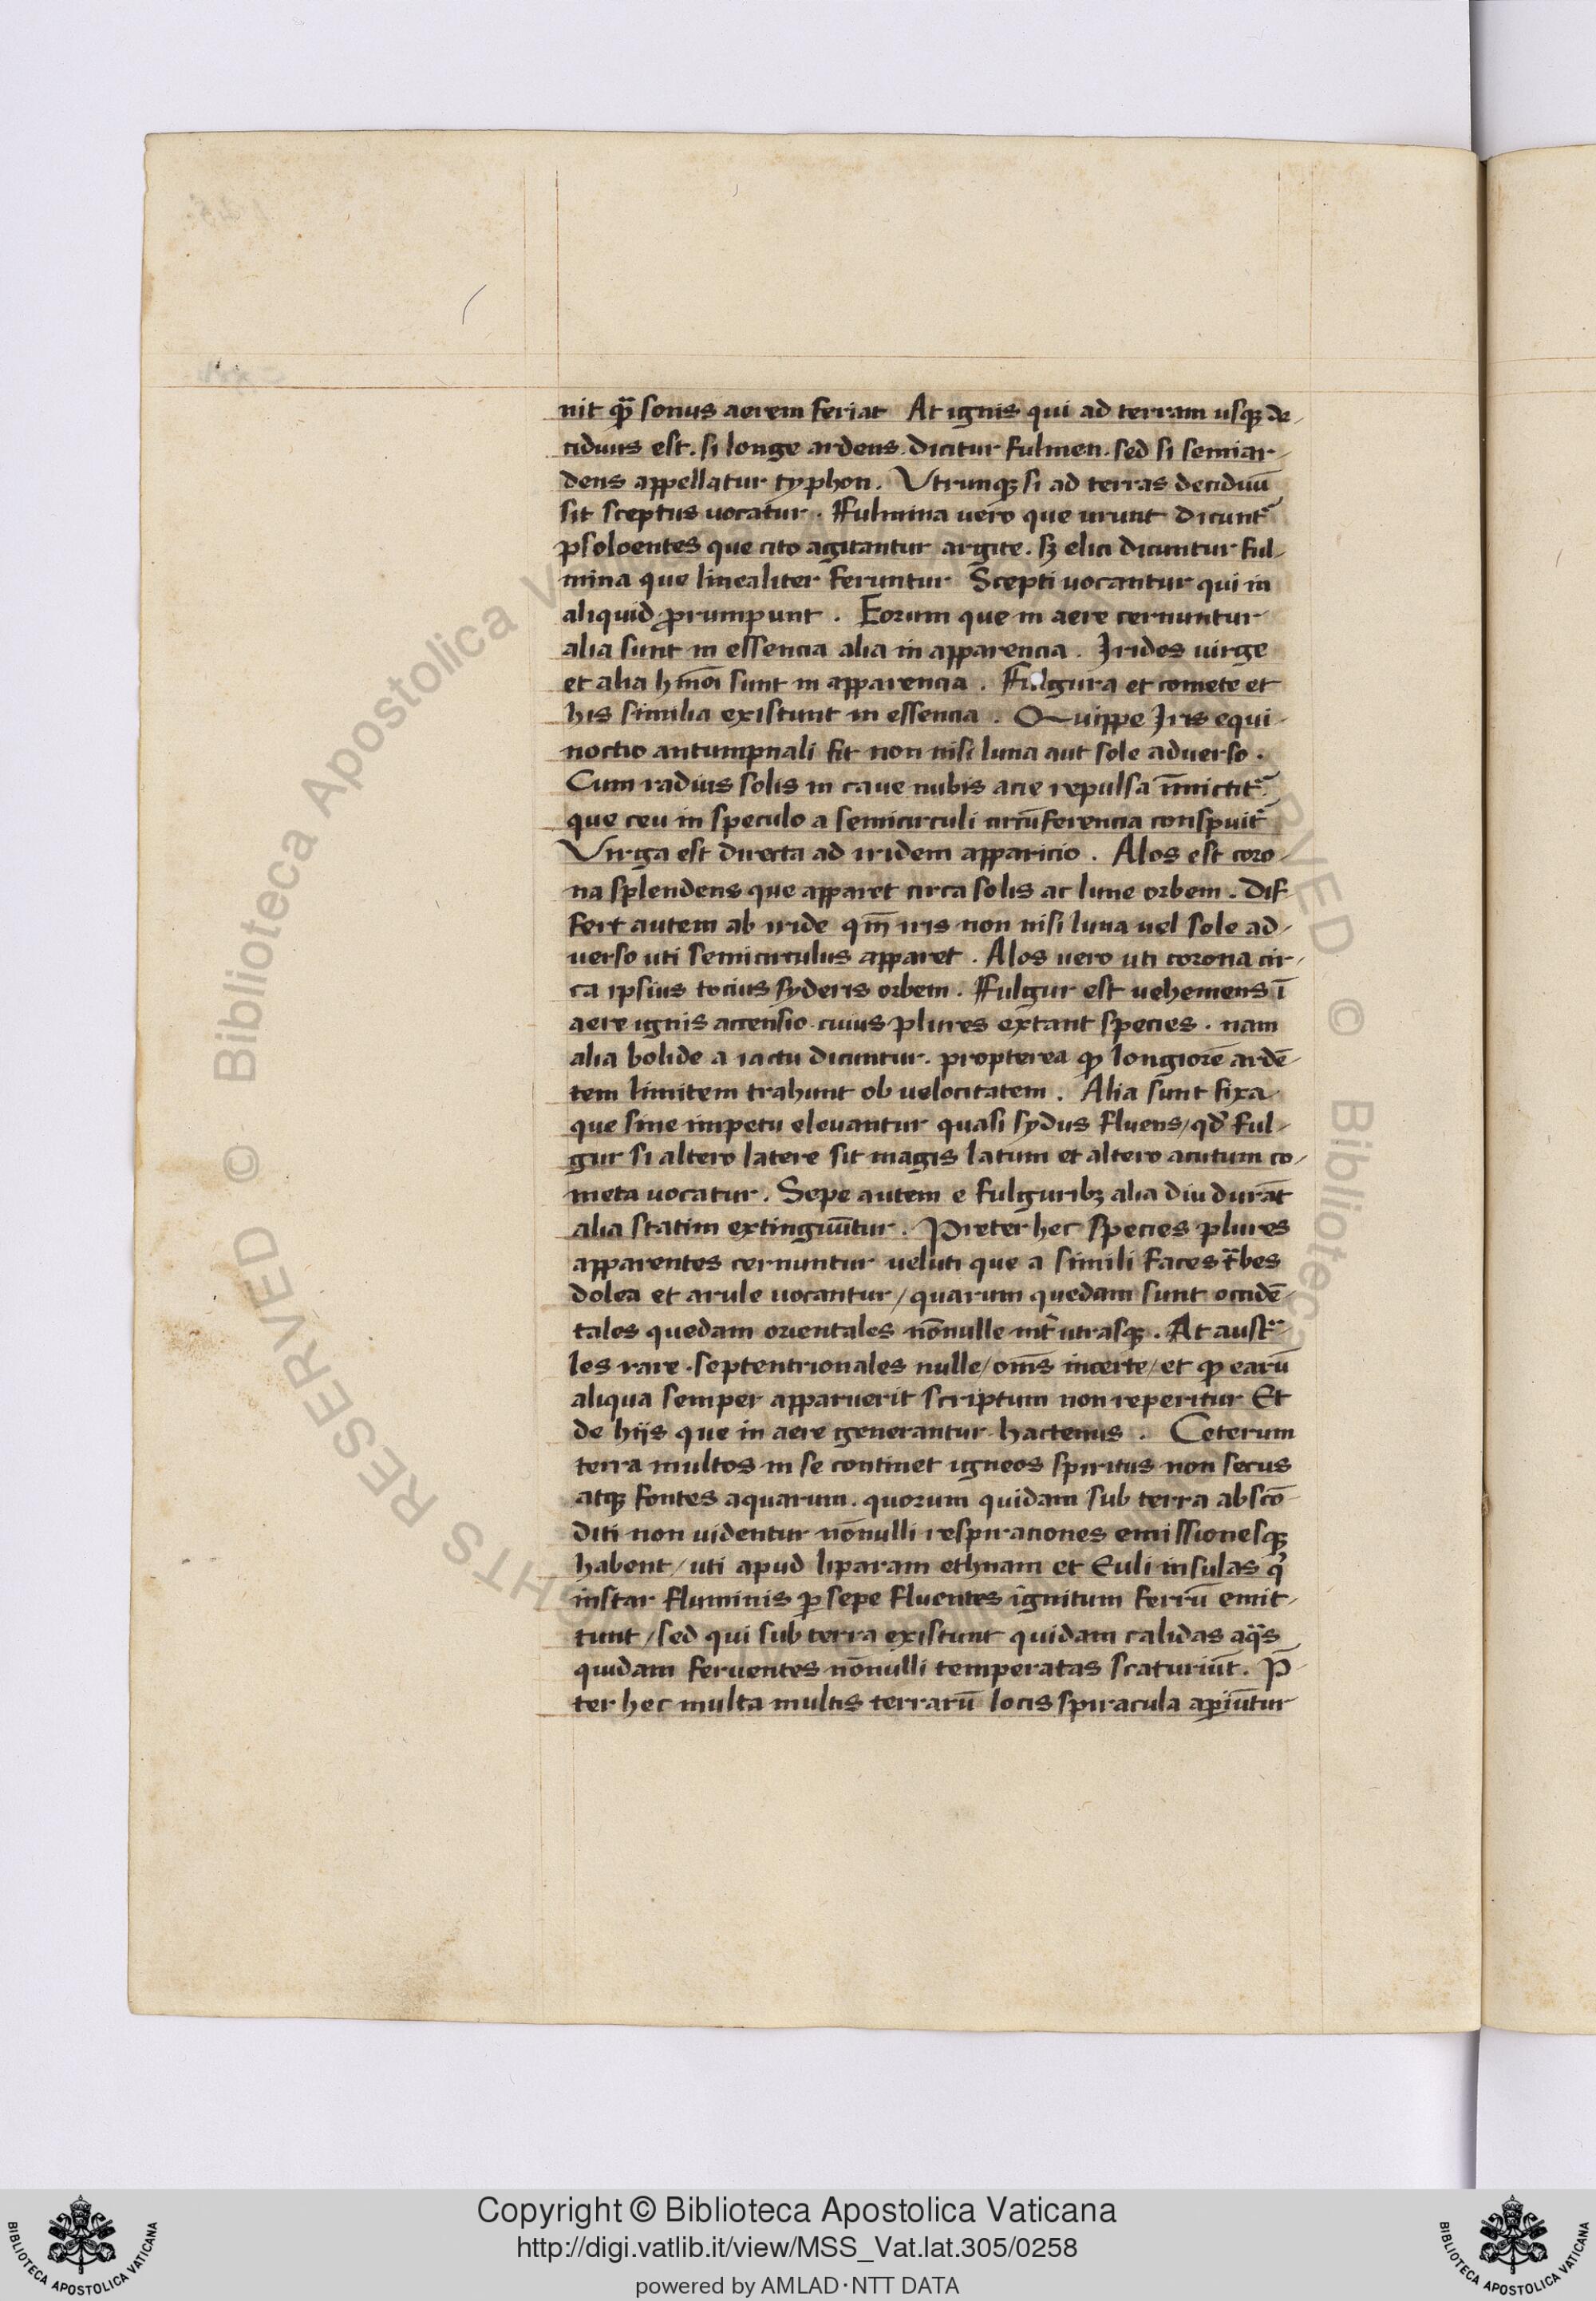 nit quaᷓ sonus aerem feriat At ignis qui ad terram usqꝫ de-
ciduus est. si longe ardens. dicitur fulmen. sed si semiar-
dens appellatur typhon. Vtrunqꝫ si ad terras deciduū
sit sceptus uocatur. Ffulmina uero que urunt dicunt᷑
psoloentes que cito agitantur argite. sꝫ elici dicuntur ful-
mina que linealiter feruntur Scepti uocantur qui in
aliquid ꝓrumpunt. Eorum que in aere cernuntur
alia sunt in essencia alia in apparencia. Irides uirge
et alia hm̄oi sunt in apparencia. Ffulgura et comete et
his similia existunt in essencia. Quippe Iris equi-
noctio autumpnali fit non nisi luna aut sole aduerso.
Cum radius solis in caue nubis acie repulsa
que ceu in speculo a semicirculi circūferencia conspicit᷑
Virga est directa ad iridem apparicio. Alos est coro-
na splendens que apparet circa solis ac lune orbem. Dif
fert autem ab iride qm̄ iris non nisi luna uel sole ad-
uerso uti semicirculus apparet. Alos uero uti corona cir-
ca ipsius tocius syderis orbem. Ffulgur est uehemens ī
aere ignis accensio. cuius plures extant species. nam
alia bolide a iactu dicuntur. propterea qꝫ longiorē ardē-
tem limitem trahunt ob uelocitatem. Alia sunt fixa
que sine impetu eleuantur quasi sydus fluens/ qd᷑ ful-
gur si altero latere sit magis latum et altero acutum co-
meta uocatur. Sepe autem e fulguribꝫ alia diu durāt
alia statim extinguūtur. Preter hec species plures
apparentes cernuntur ueluti que a simili faces t᷑bes
dolea et arule uocantur/ quarum quedam sunt occidē-
tales quedam orientales nōnulle int᷑ utrasqꝫ. At aust᷑-
les rare. septentrionales nulle/ om̄s incerte/ et qꝫ earū
aliqua semper apparuerit scriptum non reperitur Et
de hijs que in aere generantur hactenus. Ceterum
terra multos in se continet igneos spiritus non secus
atqꝫ fontes aquarum. quorum quidam sub terra abscō-
diti non uidentur nōnulli respiraciones emissionesqꝫ
habent/ uti apud liparam ethnam et Euli insulas qⁱ
instar fluminis ꝑsepe fluentes ignitum ferrū emit-
tunt/ sed qui sub terra existunt quidam calidas aq̄s
quidam feruentes nōnulli temperatas scaturiūt. P̄-
ter hec multa multis terrarū locis spiracula aꝑiūtur
Copyright © Biblioteca Apostolica Vaticana
http://digi.vatlib.it/view/MSS_Vat.lat.305/0258
powered by AMLAD·NTT DATA